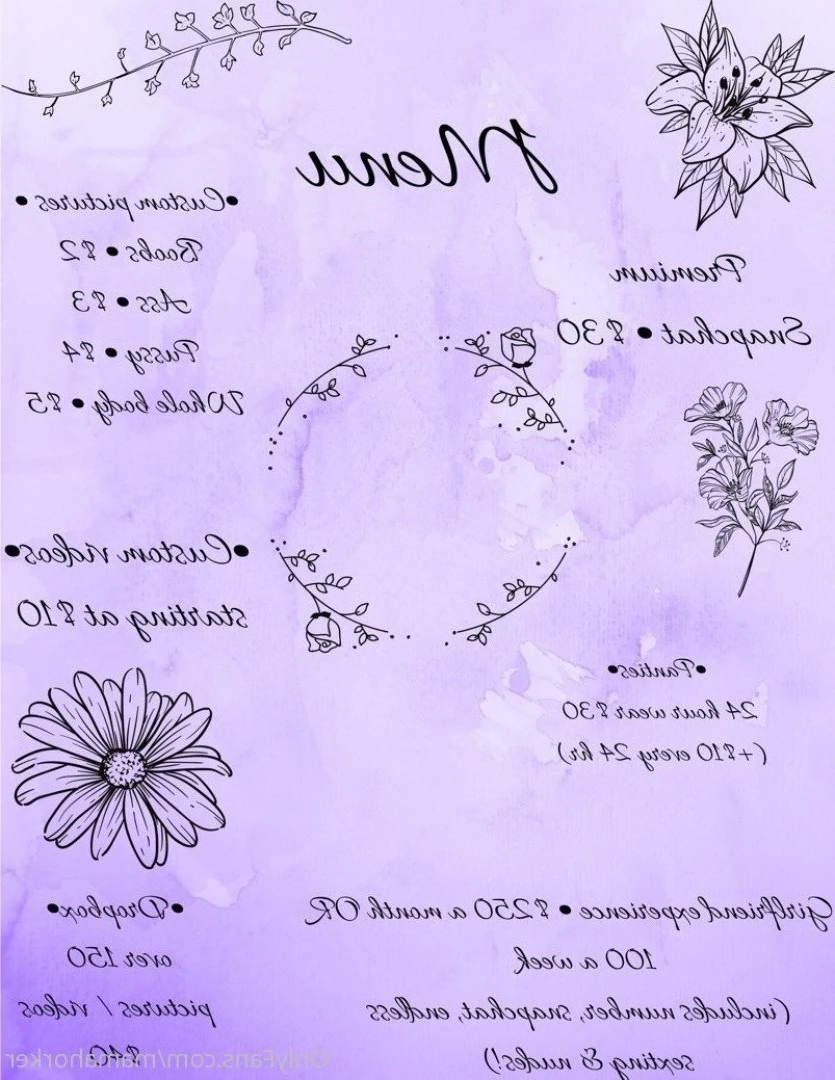 Menu
•Custom pictures•
Boobs • $2
Ass • $3
Pussy • $4
Whole body • $5
Premium
Snapchat • $30
•Custom videos•
starting at $10
•Panties•
24 hour wear $30
(+$10 every 24 hr)
•Dropbox•
over 150
pictures / videos
$40
Girlfriend experience • $250 a month OR
100 a week
(includes number, snapchat, endless
sexting & nudes!)
OnlyFans.com/mamahorker